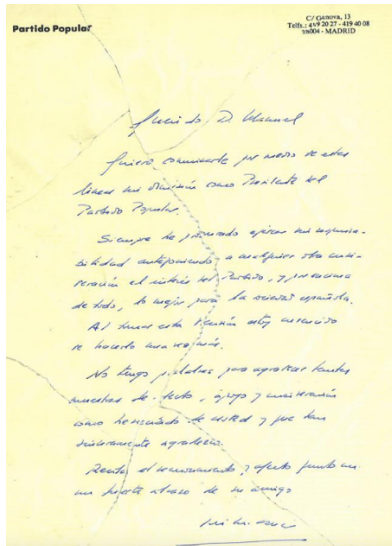 Partido Popular
C/ Génova, 13
Telfs.: 419 20 27 - 419 40 08
28004 - MADRID
Querido D. Manuel
Quiero comunicarte por medio de estas
líneas mi dimisión como Presidente del
Partido Popular.
Siempre he procurado ejercer mi responsa-
bilidad anteponiendo a cualquier otra consi-
deración el interés del Partido, y por encima
de todo, lo mejor para la sociedad española.
Al tomar esta decisión estoy convencido
de hacerlo una vez más.
No tengo palabras para agradecer tantas
muestras de afecto, apoyo y consideración
como he recibido de usted y que tan
sinceramente agradezco.
Reciba el reconocimiento y afecto junto con
un fuerte abrazo de su amigo